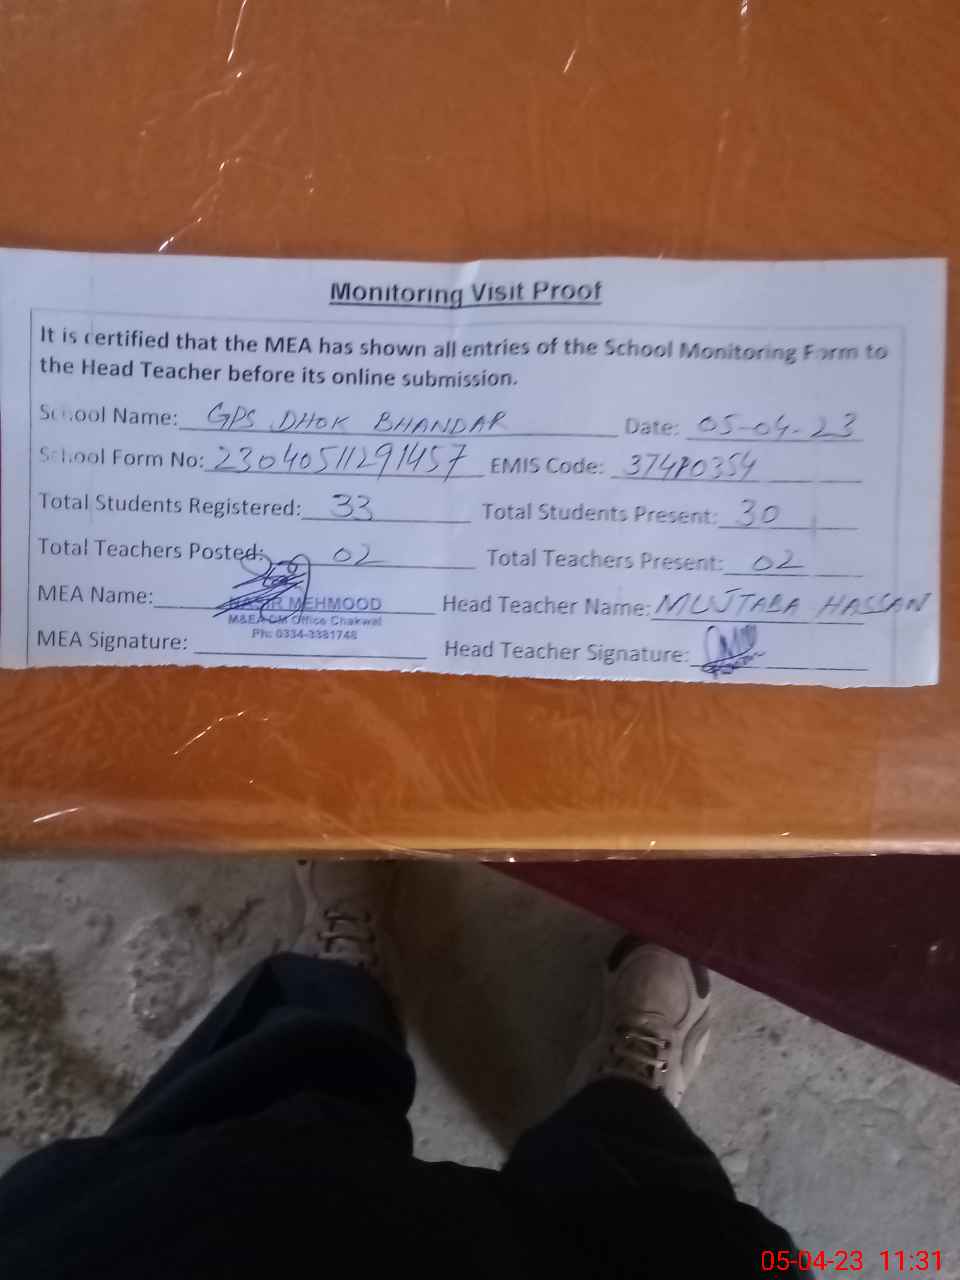 Monitoring Visit Proof
It is certified that the MEA has shown all entries of the School Monitoring Form to
the Head Teacher before its online submission.
School Name: GPS DHOK BHANDAR Date: 05-04-23
School Form No: 23040511291457 EMIS Code: 37480354
Total Students Registered: 33 Total Students Present: 30
Total Teachers Posted: 02 Total Teachers Present: 02
MEA Name: MEHMOOD Head Teacher Name: MUJTABA HASSAN
M&EA DM Office Chakwal
Ph: 0334-3381748
MEA Signature: Head Teacher Signature:
05-04-23 11:31